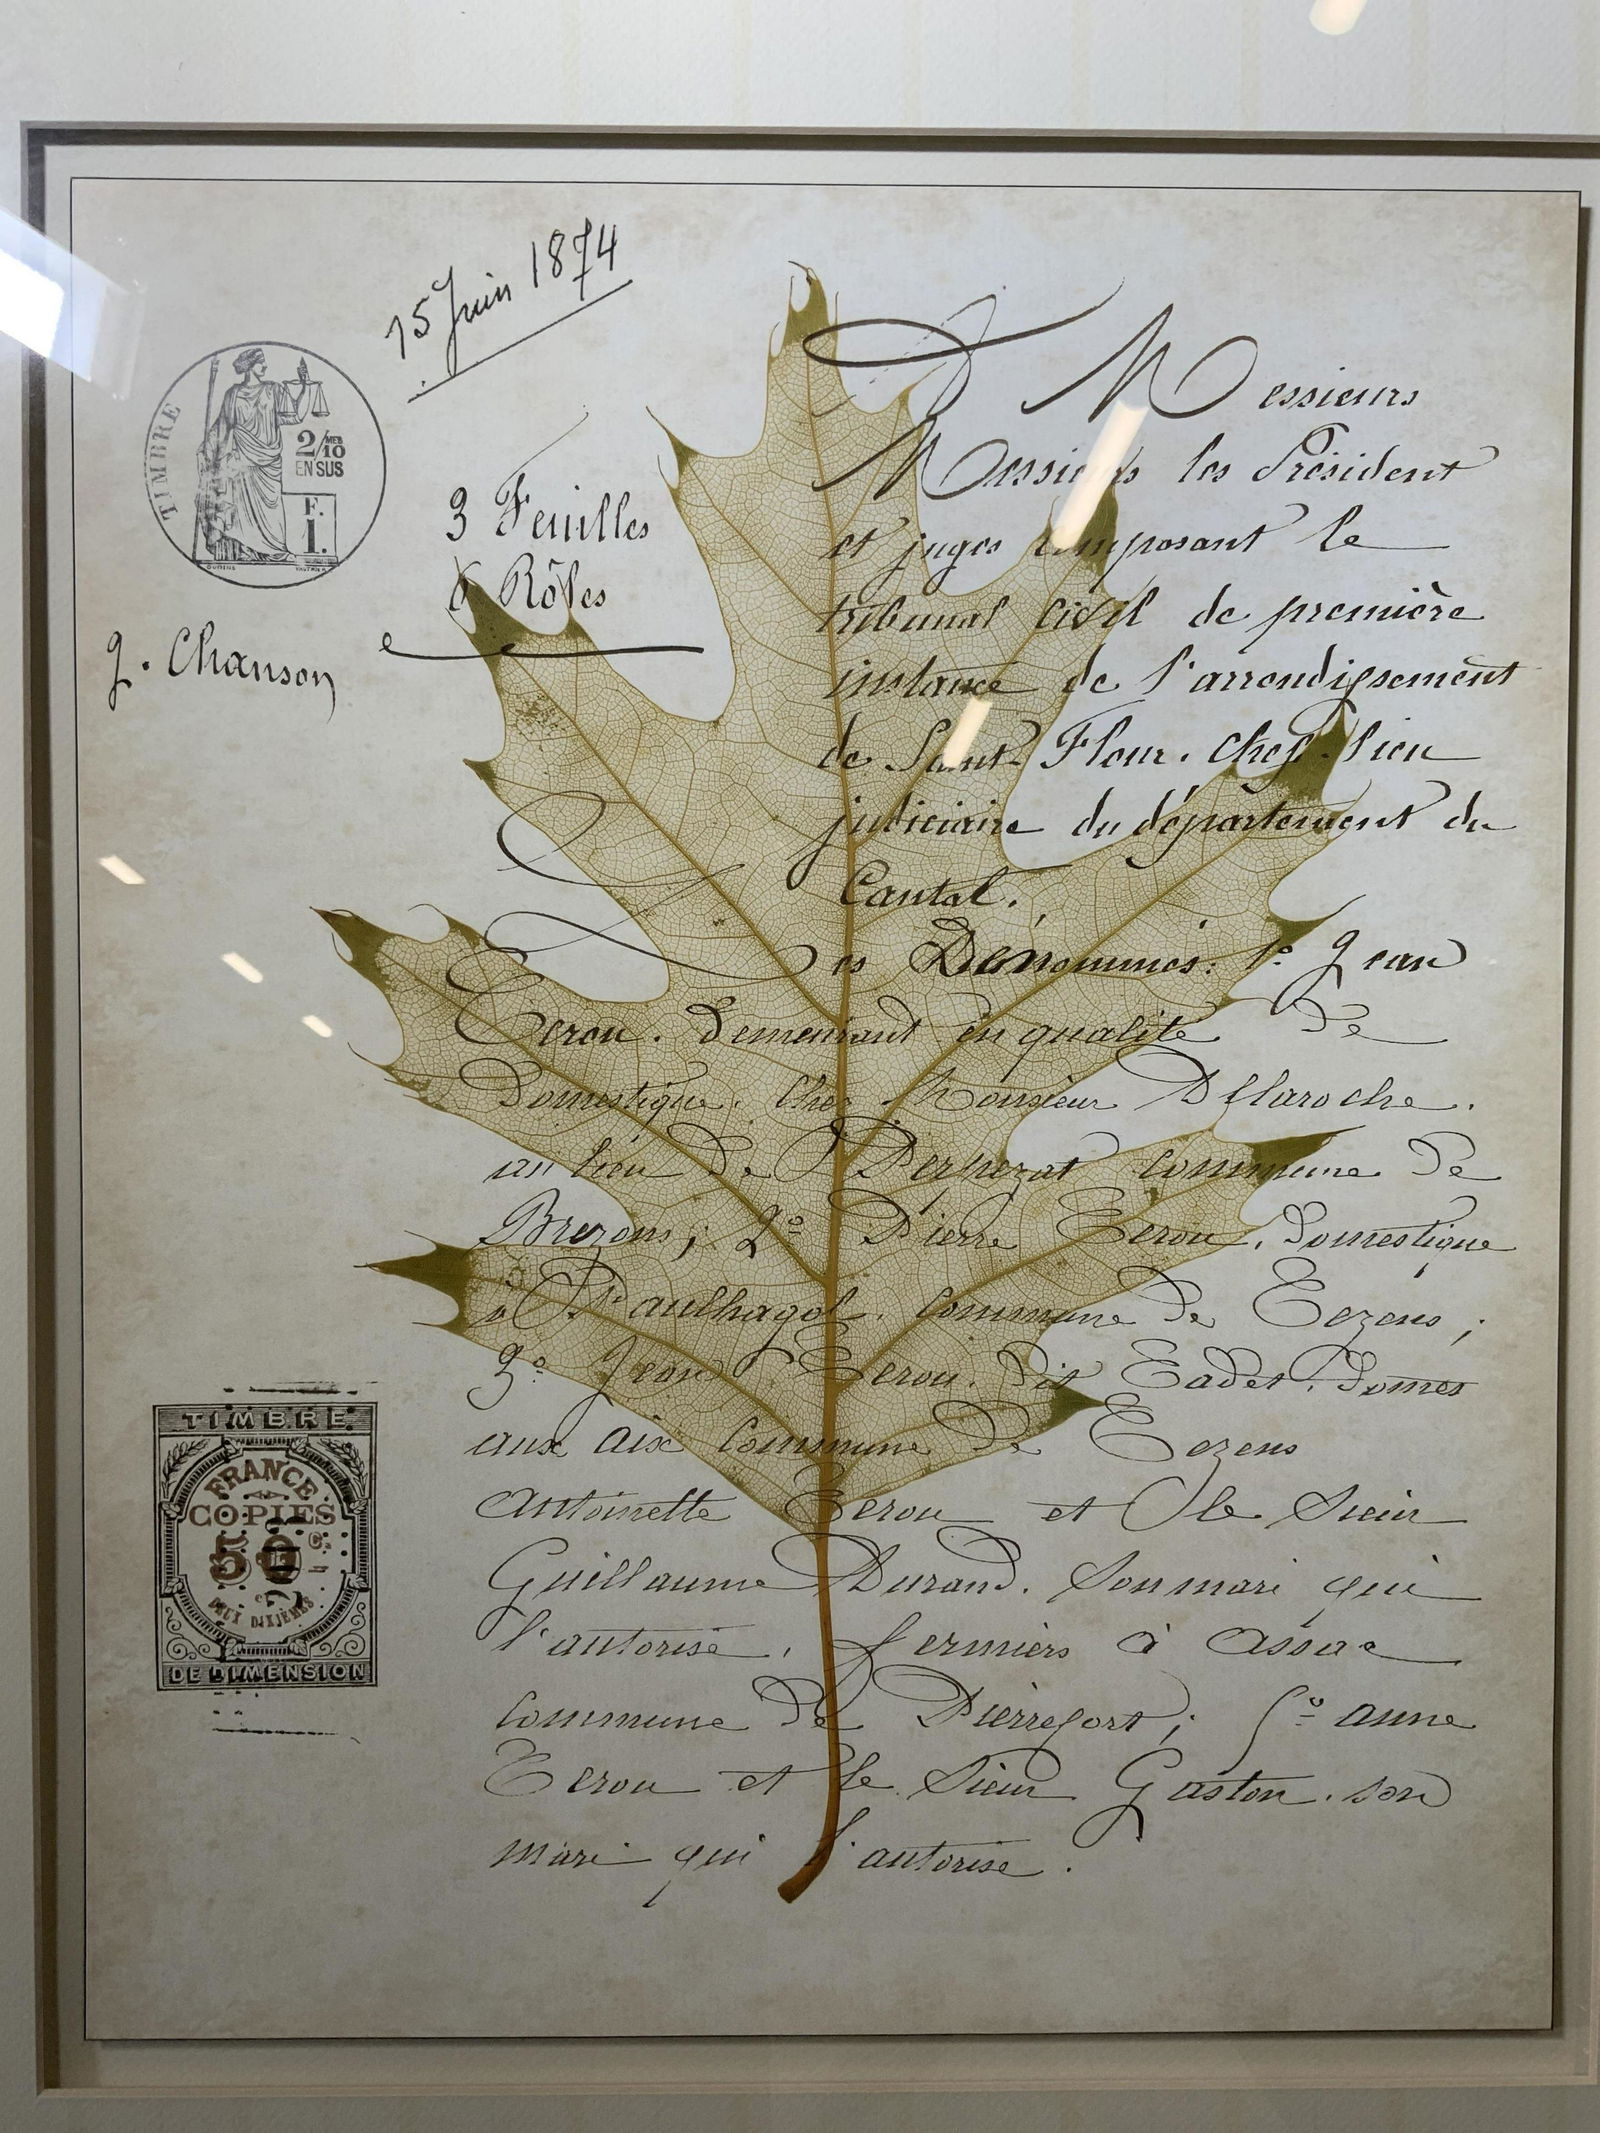 15 Juin 1874
TIMBRE
2/10 MES
EN SUS
F.
1.
3 Feuilles
6 Rôles
J. Chanson
Messieurs
Messieurs les Président
et juges composant le
tribunal civil de première
instance de l'arrondissement
de Saint-Flour. chef-lieu
judiciaire du département du
Cantal.
Les Dénommés: 1º Jean
Terou. demeurant en qualité de
Domestique. chez Monsieur Dllaroche.
au lieu de commune de
Brezons; 2º Pierre Terou. domestique
à commune de Cezens;
3º Jean Terou. dit Cadet. domes
aux aix commune de Cezens
Antoinette Terou et le sieur
Guillaume Durand. son mari qui
l'autorise, fermiers à assac
commune de Pierrefort; 5º anne
Terou et le sieur Gaston. son
mari qui l'autorise.
TIMBRE
FRANCE
COPIES
50 C.
DEUX DIXIÈMES
DE DIMENSION